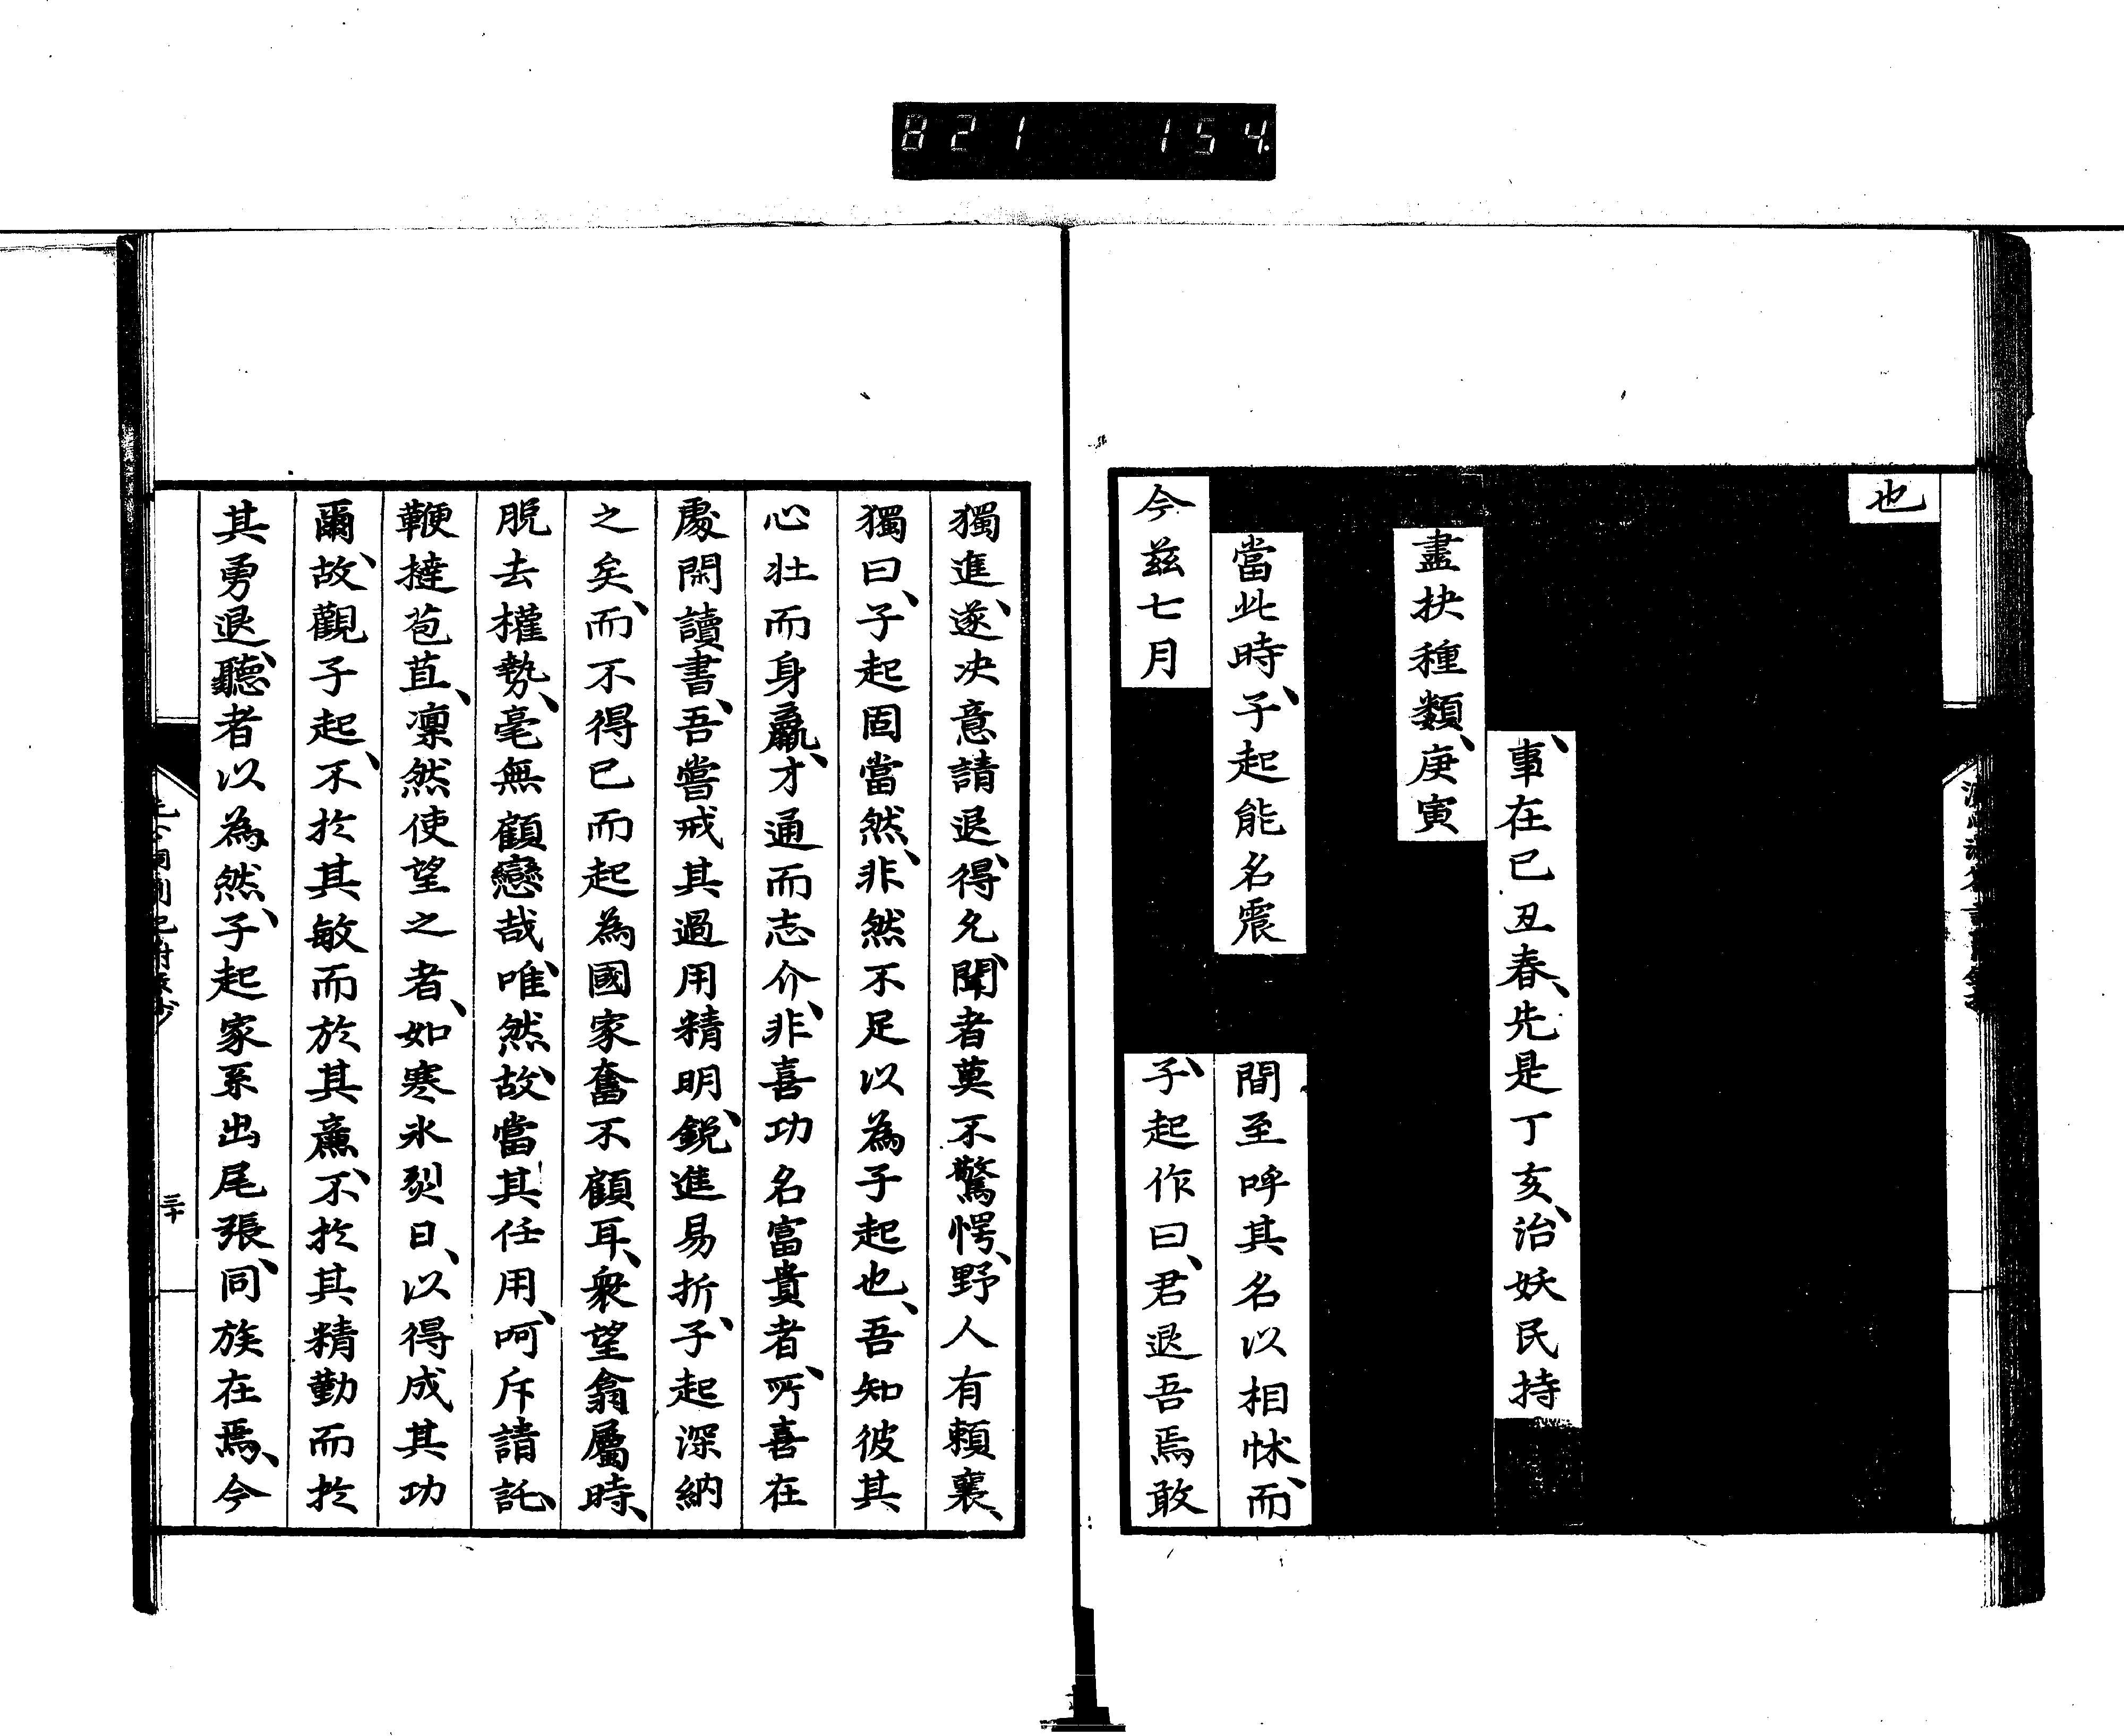 821 154.
也
事在已丑春、先是丁亥、治妖民持
盡抉種類、庚寅
當此時、子起能名震
間至呼其名以相怵、而
今茲七月
子起作曰、君退吾焉敢
獨進、遂決意請退、得允、聞者莫不驚愕、野人有賴襄、
獨曰、子起固當然、非然不足以為子起也、吾知彼其
心壯而身羸、才通而志介、非喜功名富貴者、所喜在
處閑讀書、吾嘗戒其過用精明、銳進易折、子起深納
之矣、而不得已而起為國家奮不顧耳、衆望翕屬時、
脫去權勢、毫無顧戀哉、唯然、故當其任用、呵斥請託、
鞭撻苞苴、凜然使望之者、如寒氷烈日、以得成其功
爾、故觀子起、不於其敏而於其廉、不於其精勤而於
其勇退、聽者以為然、子起家系出尾張、同族在焉、今
三十